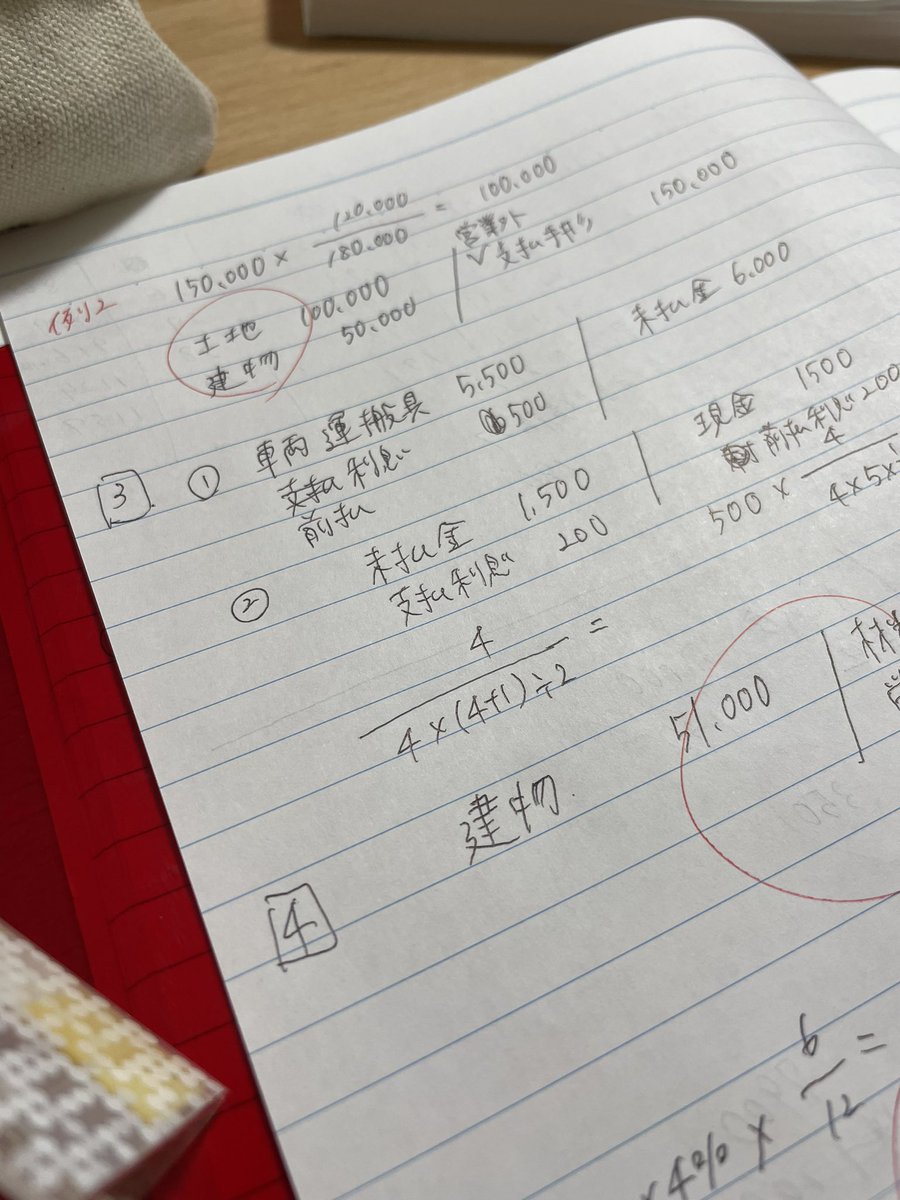 150,000 × 120,000/180,000 = 100,000
例2 土地 100,000 営業外支払手形 150,000
建物 50,000
3 ① 車両運搬具 5,500 未払金 6,000
支払利息 500
前払
② 未払金 1,500 現金 1500
支払利息 200 前払利息 200
4/4×(4+1)÷2 =
500 × 4/4×5×
建物 51,000
4
×4% × 6/12 =